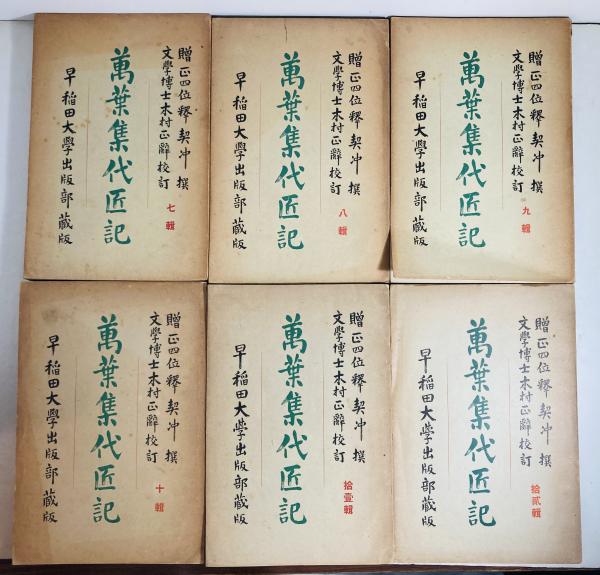 贈正四位釋契沖撰
文學博士木村正辭校訂
七輯
萬葉集代匠記
早稲田大學出版部藏版
贈正四位釋契沖撰
文學博士木村正辭校訂
八輯
萬葉集代匠記
早稲田大學出版部藏版
贈正四位釋契沖撰
文學博士木村正辭校訂
九輯
萬葉集代匠記
早稲田大學出版部藏版
贈正四位釋契沖撰
文學博士木村正辭校訂
十輯
萬葉集代匠記
早稲田大學出版部藏版
贈正四位釋契沖撰
文學博士木村正辭校訂
拾壹輯
萬葉集代匠記
早稲田大學出版部藏版
贈正四位釋契沖撰
文學博士木村正辭校訂
拾貳輯
萬葉集代匠記
早稲田大學出版部藏版